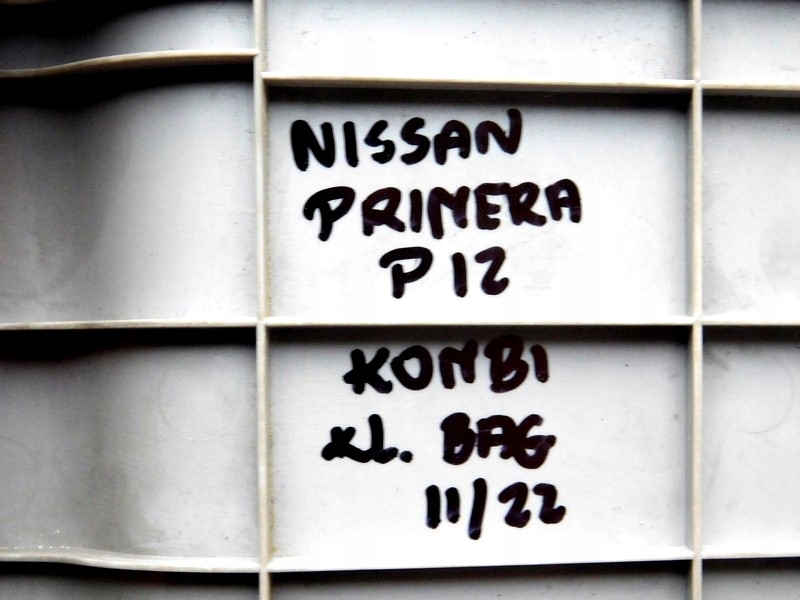 NISSAN
PRIMERA
P12
KOMBI
KL. BAG
11/22